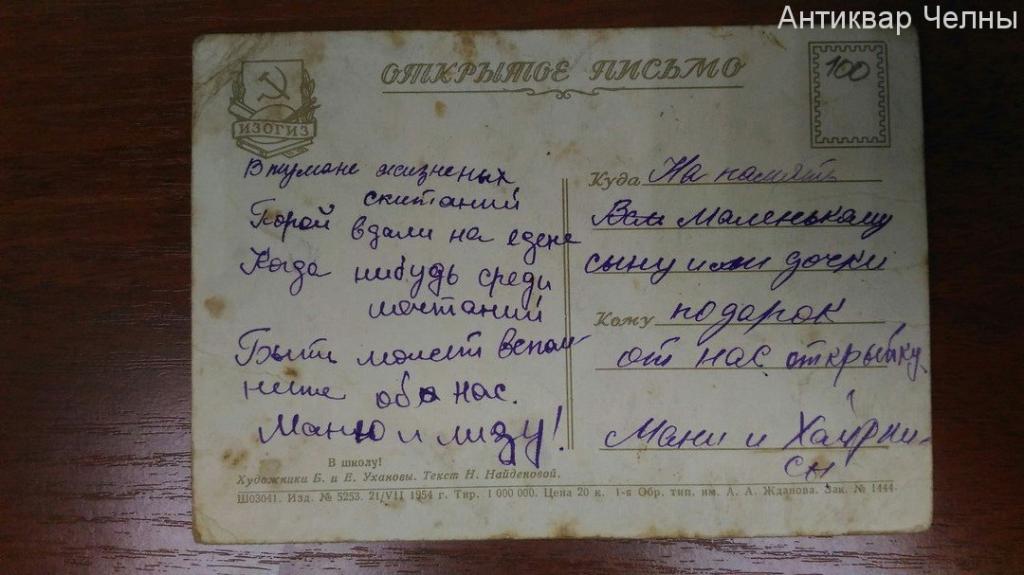 Антиквар Челны
ОТКРЫТОЕ ПИСЬМО
100
ИЗОГИЗ
В тумане жизненых
скитаний
Порой вдали на едене
Когда нибудь среди
мечтаний
Быть может вспом
ните обо нас.
Маню и лизу!
Куда На память
Маленькаму
сыну или дочки
Кому подарок
от нас открытку
Мани и
В школу!
Художники Б. и Е. Ухановы. Текст Н. Найденовой.
Ш03041. Изд. № 5253. 21/VII 1954 г. Тир. 1 000 000. Цена 20 к. 1-я Обр. тип. им. А. А. Жданова. Зак. № 1444.